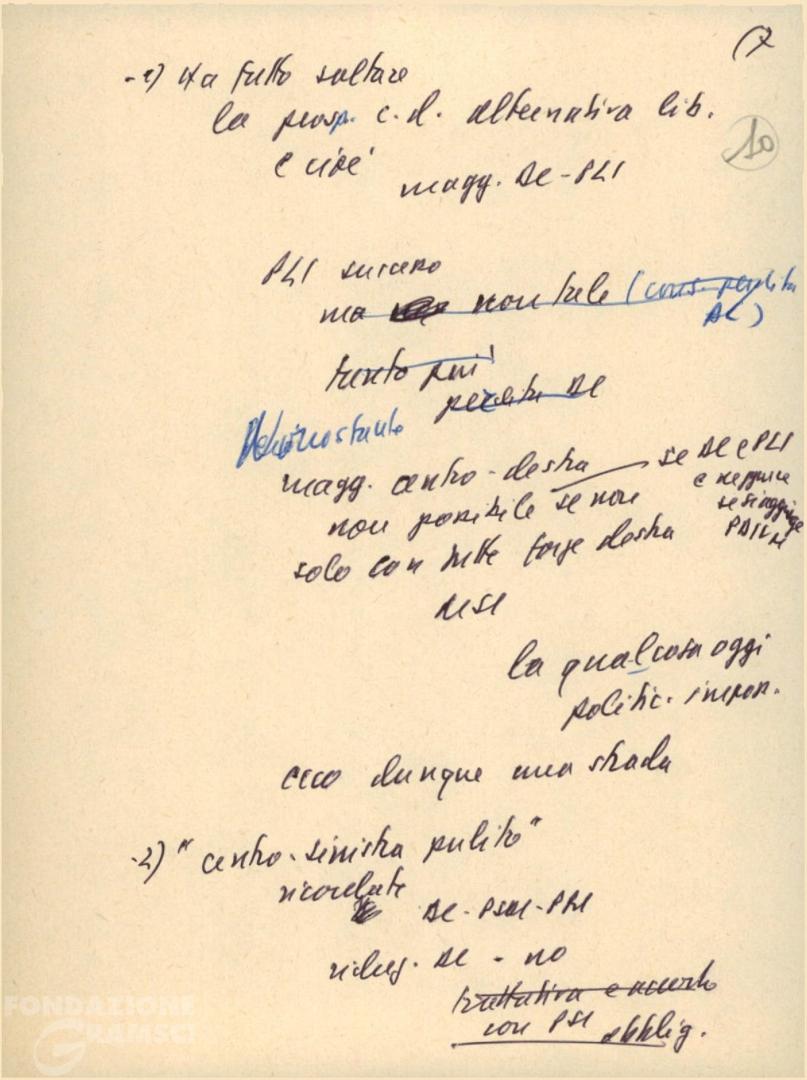 (7
10
-1) Ha fatto saltare
la prosp. c.d. alternativa lib.
e cioè
magg. DC-PLI
PLI successo
ma non tale (cons. perdita
DC)
tanto più
perdita DC
Nonostante
magg. centro-destra se DC e PLI
e neppure
se si aggiunge
non possibile se non
solo con tutte forze destra
MSI
la qualcosa oggi
politic. imposs.
ecco dunque una strada
-2) "centro-sinistra pulito"
ricordate
DC-PSDI-PRI
DC - no
trattativa e accordo
con PSI obblig.
FONDAZIONE
GRAMSCI